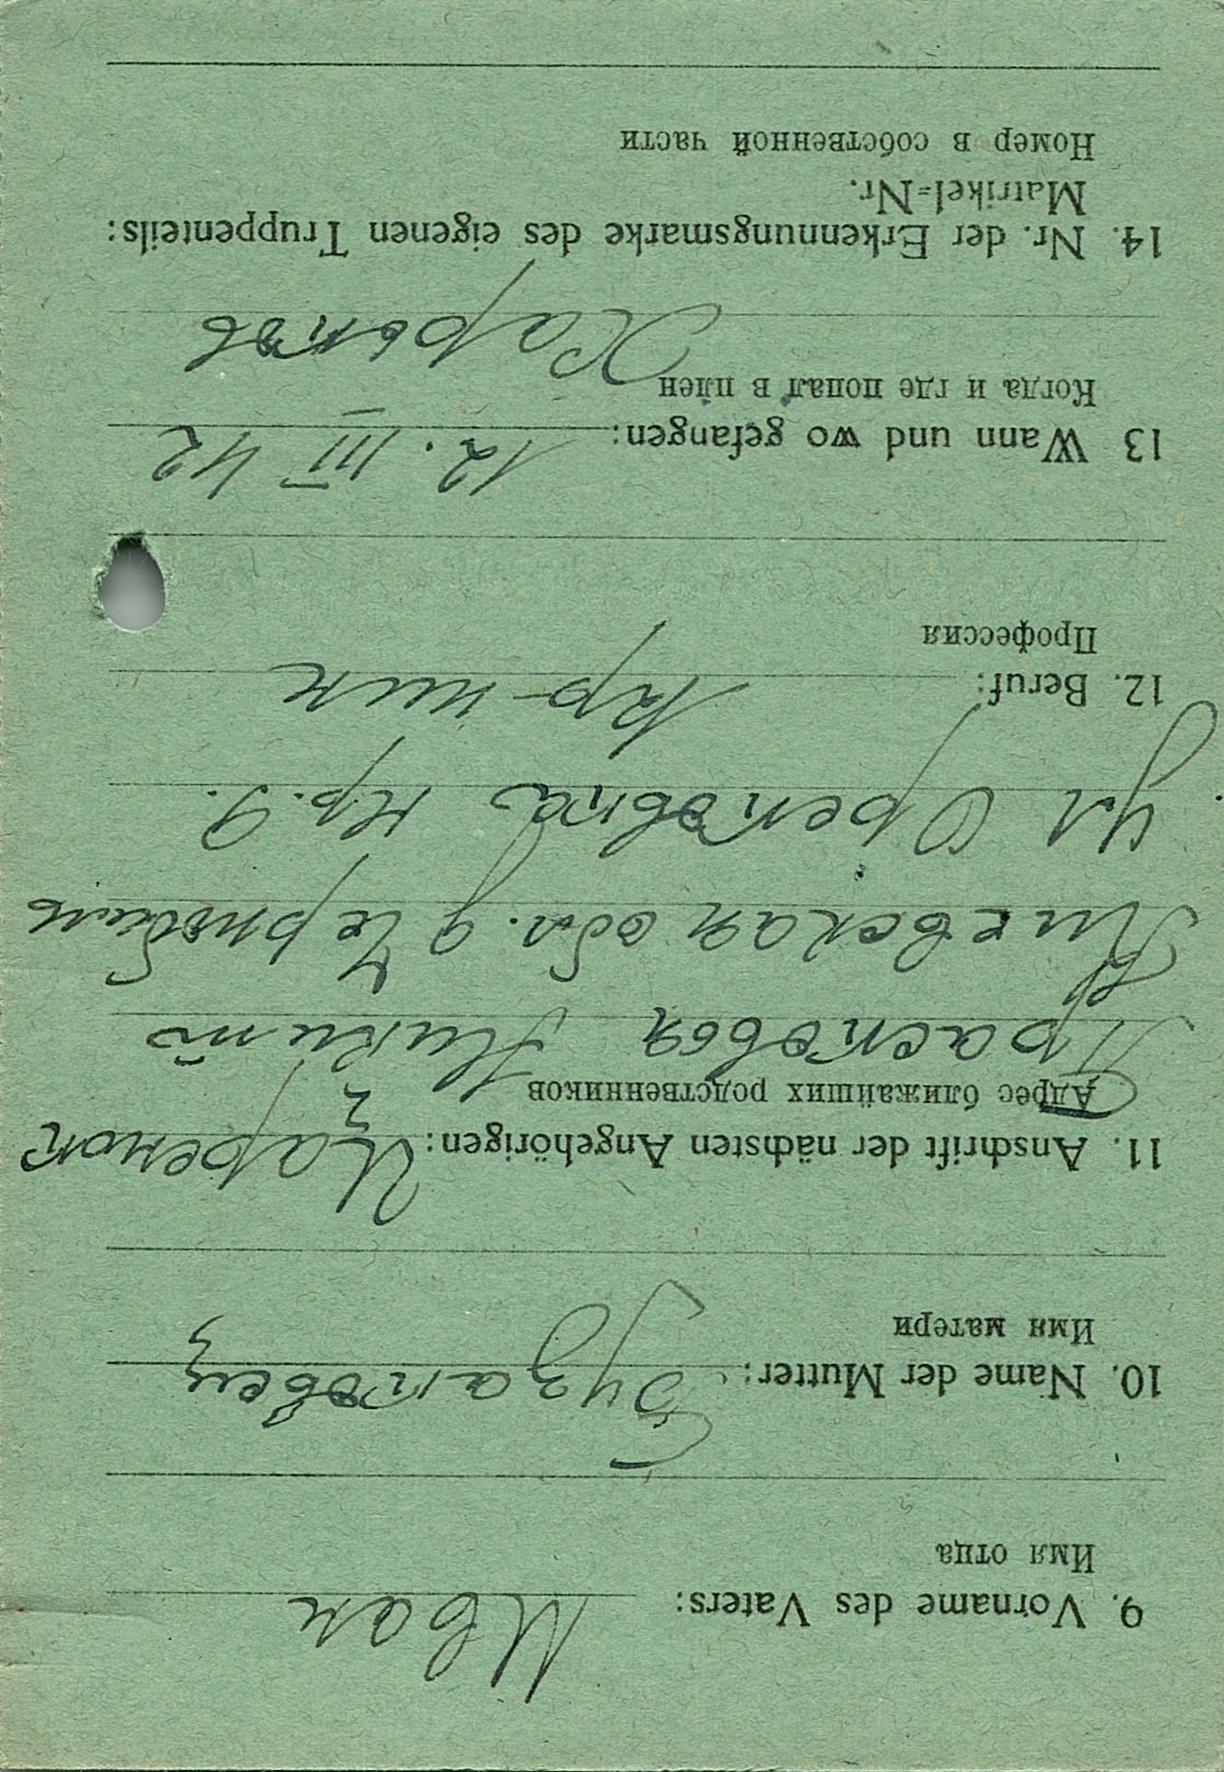 9. Vorname des Vaters: Иван
Имя отца
10. Name der Mutter: Бузановец
Имя матери
11. Anschrift der nächsten Angehörigen:
Адрес ближайших родственников
Прасковья
Киевская обл. г Чернобиль
ул
12. Beruf:
Профессия
13 Wann und wo gefangen: 12. III 42
Когда и где попал в плен
Харьков
14. Nr. der Erkennungsmarke des eigenen Truppenteils:
Matrikel=Nr.
Номер в собственной части